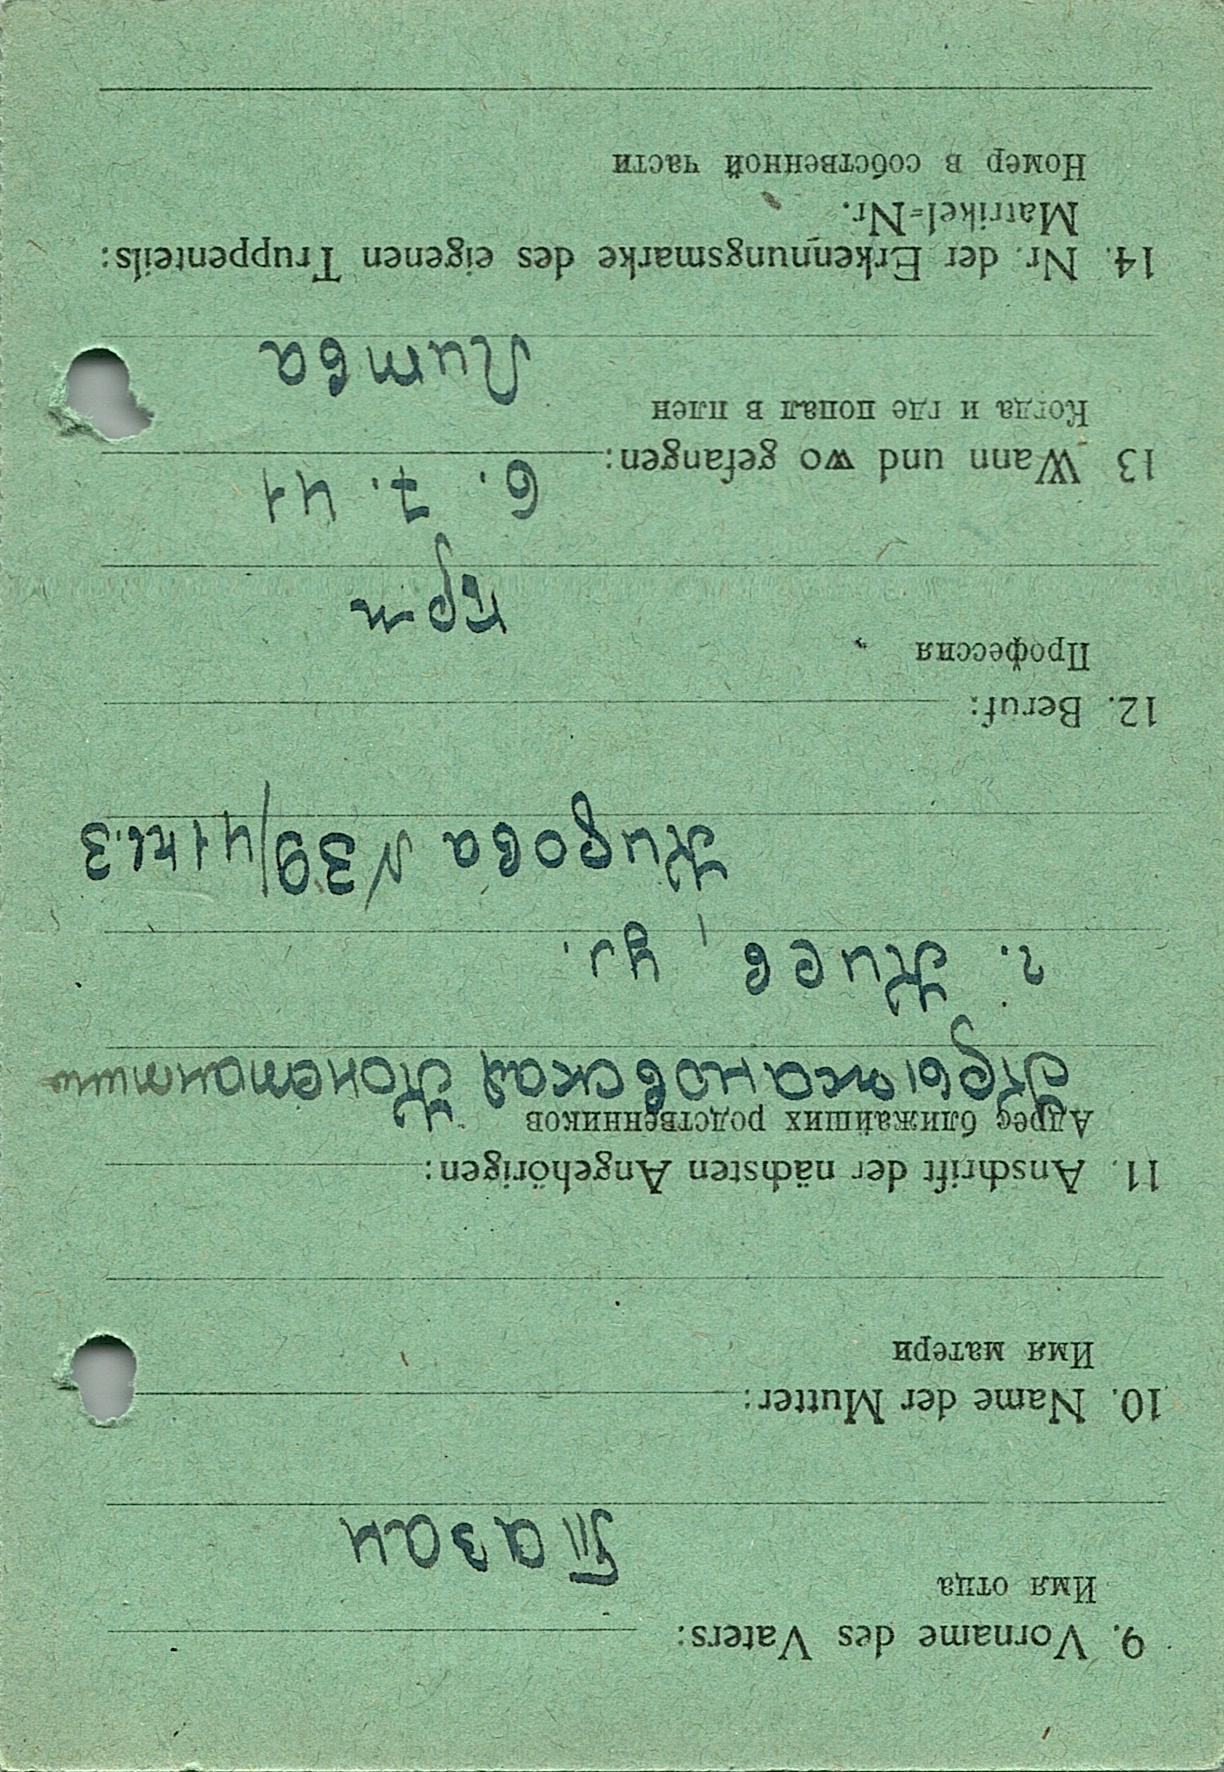 9. Vorname des Vaters:
Имя отца
Тазан
10. Name der Mutter:
Имя матери
11. Anschrift der nächsten Angehörigen:
Адрес ближайших родственников
г. Киев, ул.
Кирова N 39/41 кв.3
12. Beruf:
Профессия
13 Wann und wo gefangen:
6. 7. 41
Когда и где попал в плен
Литва
14. Nr. der Erkennungsmarke des eigenen Truppenteils:
Matrikel=Nr.
Номер в собственной части